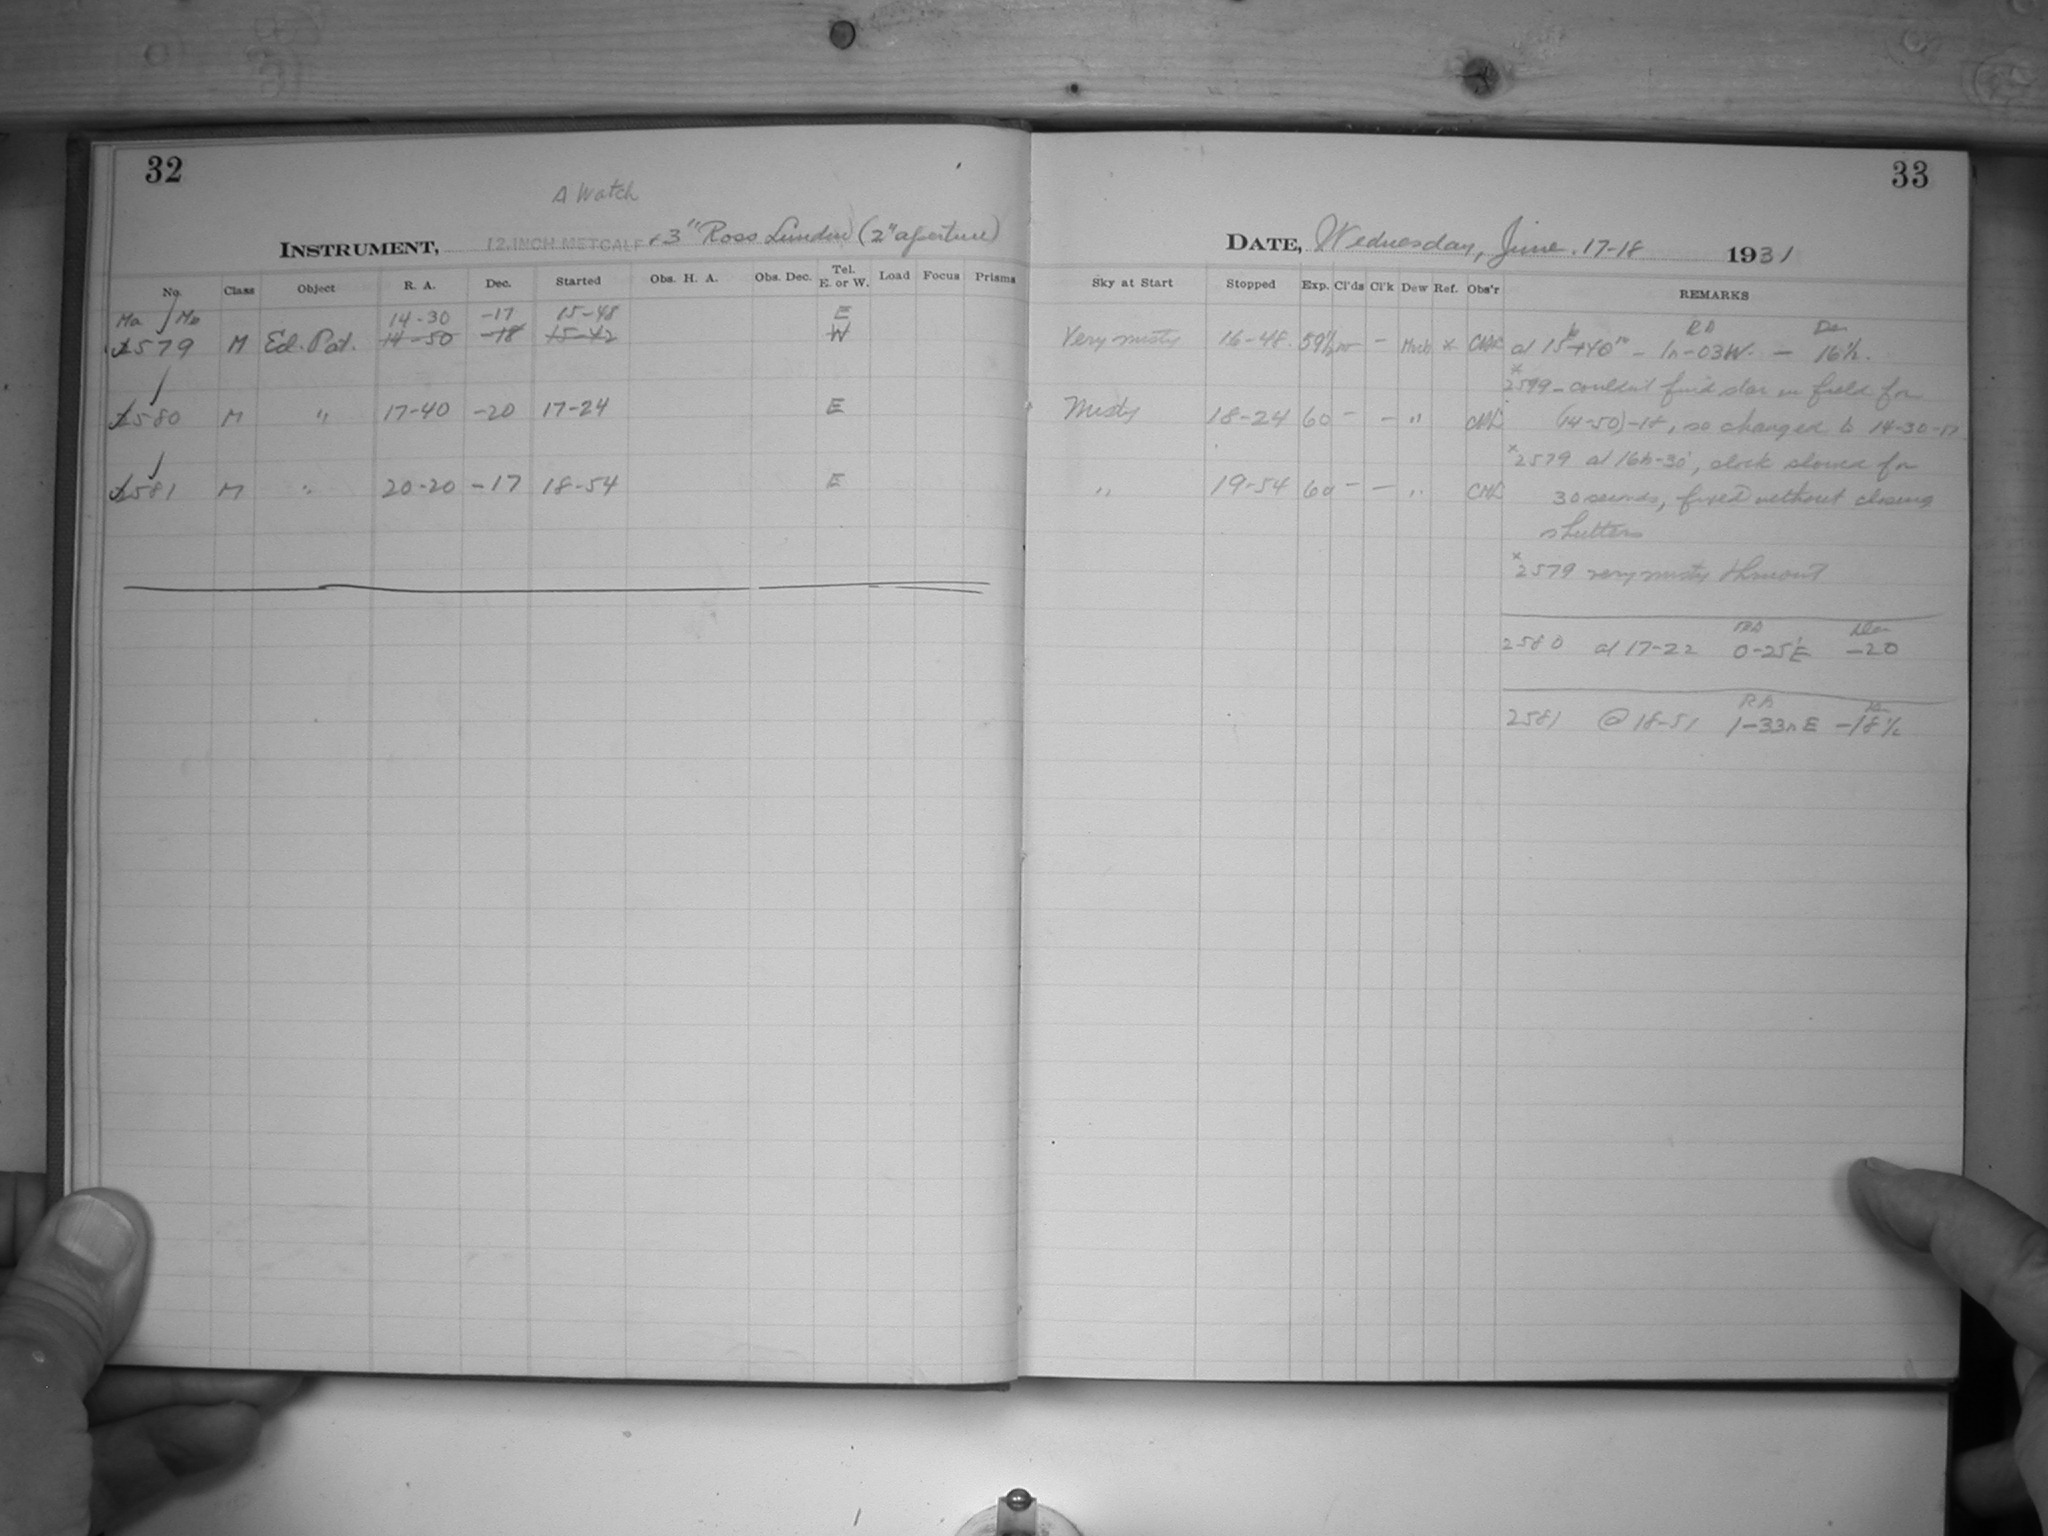 32
A Watch
INSTRUMENT, 12-INCH METCALF + 3" Ross Lunden (2" aperture)
No. Class Object R. A. Dec. Started Obs. H. A. Obs. Dec. Tel. E. or W. Load Focus Prisms
Ma Mb 14-30 -17 15-48 E
2579 M Ed. Pat. 14-50 -18 15-42 W
2580 M " 17-40 -20 17-24 E
2581 M " 20-20 -17 18-54 E
33
DATE, Wednesday, June 17-18 1931
Sky at Start Stopped Exp. Cl'ds Cl'k Dew Ref. Obs'r REMARKS
RA Dec
Very misty 16-48 59½ - Much x at 15h+40m - 1h-03W. - 16½.
x
2579 - couldn't find star in field for
Misty 18-24 60 - - " (14-50)-18, so changed to 14-30-17
x 2579 at 16h-30', clock slowed for
" 19-54 60 - - " 30 seconds, fixed without closing
shutters
x 2579 very misty thruout
RA Dec
2580 at 17-22 0-25'E -20
RA Dec
2581 @ 18-51 1-33m E -18½